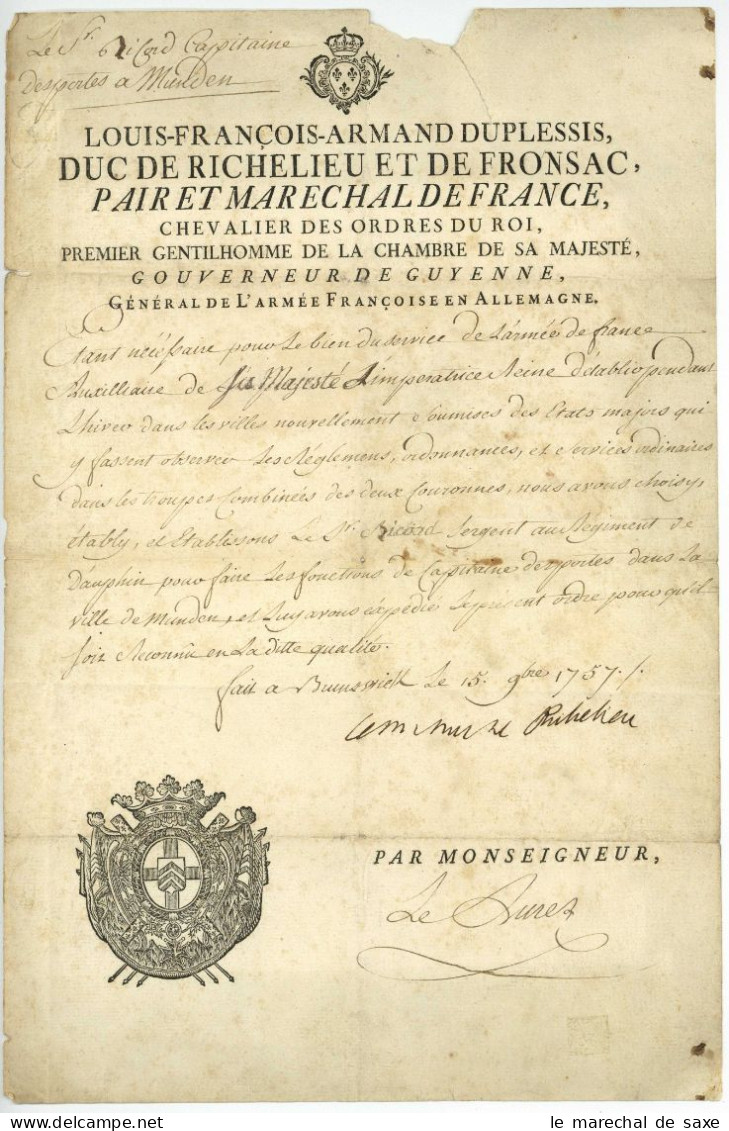 Le Sr. Ricord Capitaine
des portes a Munden
LOUIS-FRANÇOIS-ARMAND DUPLESSIS,
DUC DE RICHELIEU ET DE FRONSAC,
PAIR ET MARECHAL DE FRANCE,
CHEVALIER DES ORDRES DU ROI,
PREMIER GENTILHOMME DE LA CHAMBRE DE SA MAJESTÉ,
GOUVERNEUR DE GUYENNE,
GÉNÉRAL DE L'ARMÉE FRANÇOISE EN ALLEMAGNE.
Etant nécéssaire pour Le bien du service de L'armée de france
Auxilliaire de Sa Majesté L'imperatrice Reine d'établir pendant
L'hiver dans les villes nouvellement soumises des Etats majors qui
y fassent observer Les Réglemens, ordonnances, et services ordinaires
dans les troupes Combinées des deux Couronnes, nous avons choisy,
étably, et Etablissons Le Sr. Ricord Sergent au Régiment de
Dauphin pour faire Les fonctions de Capitaine des portes dans La
ville de Munden, et Luy avons éxpédié Le présent ordre pour qu'il
soit Reconnû en La ditte qualité.
fait a Brunswick Le 15. 9bre 1757./.
Richelieu
PAR MONSEIGNEUR,
Le Lurez
le marechal de saxe